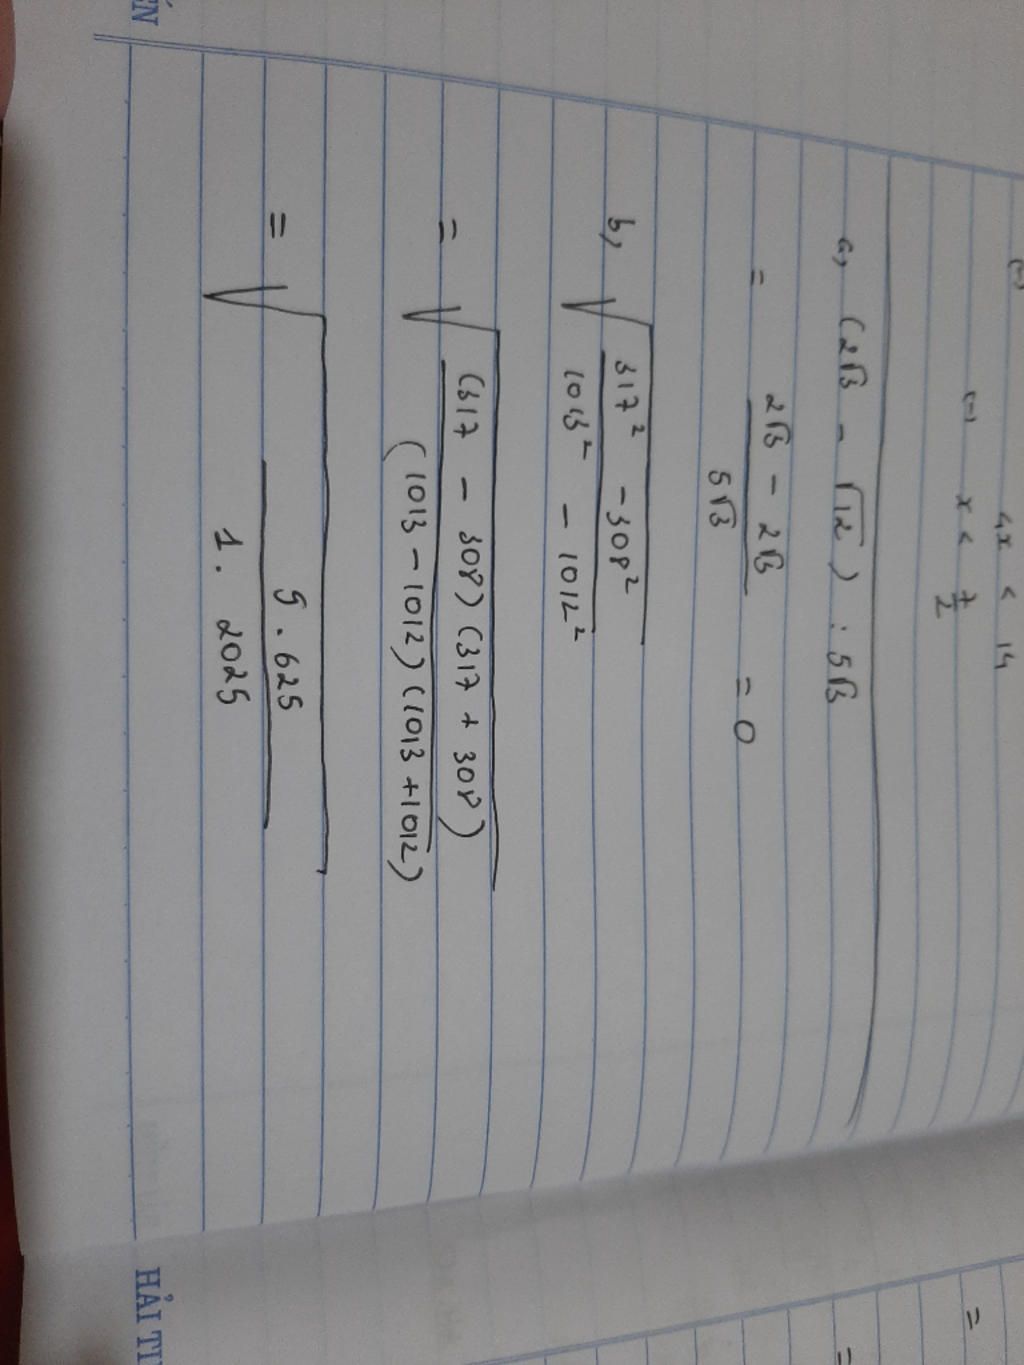 4x < 14
(=) x < 7/2
a, (2√3 - √12) : 5√3
= (2√3 - 2√3)/(5√3) = 0
b, √((317² - 308²)/(1013² - 1012²))
= √(((317 - 308)(317 + 308))/((1013 - 1012)(1013 + 1012)))
= √((9.625)/(1. 2025))
HẢI TI